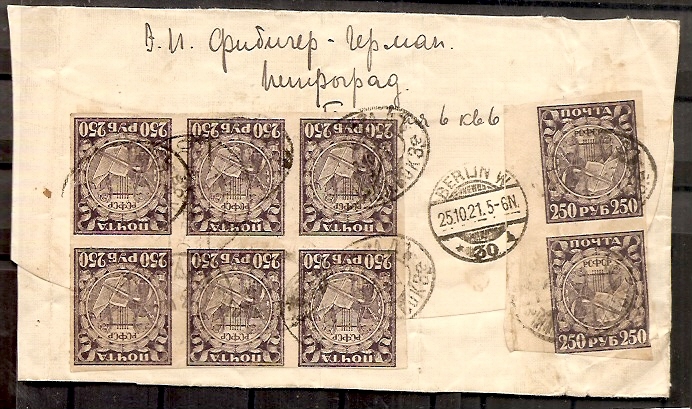 А. И. Фрибичер-Герман.
Петроград.
6 кв 6
250 РУБ 250
250 РУБ 250
250 РУБ 250
РСФСР
РСФСР
РСФСР
ПОЧТА
ПОЧТА
ПОЧТА
250 РУБ 250
250 РУБ 250
250 РУБ 250
РСФСР
РСФСР
РСФСР
ПОЧТА
ПОЧТА
ПОЧТА
BERLIN W
25.10.21.5-6N.
30
ПОЧТА
РСФСР
250 РУБ 250
ПОЧТА
РСФСР
250 РУБ 250